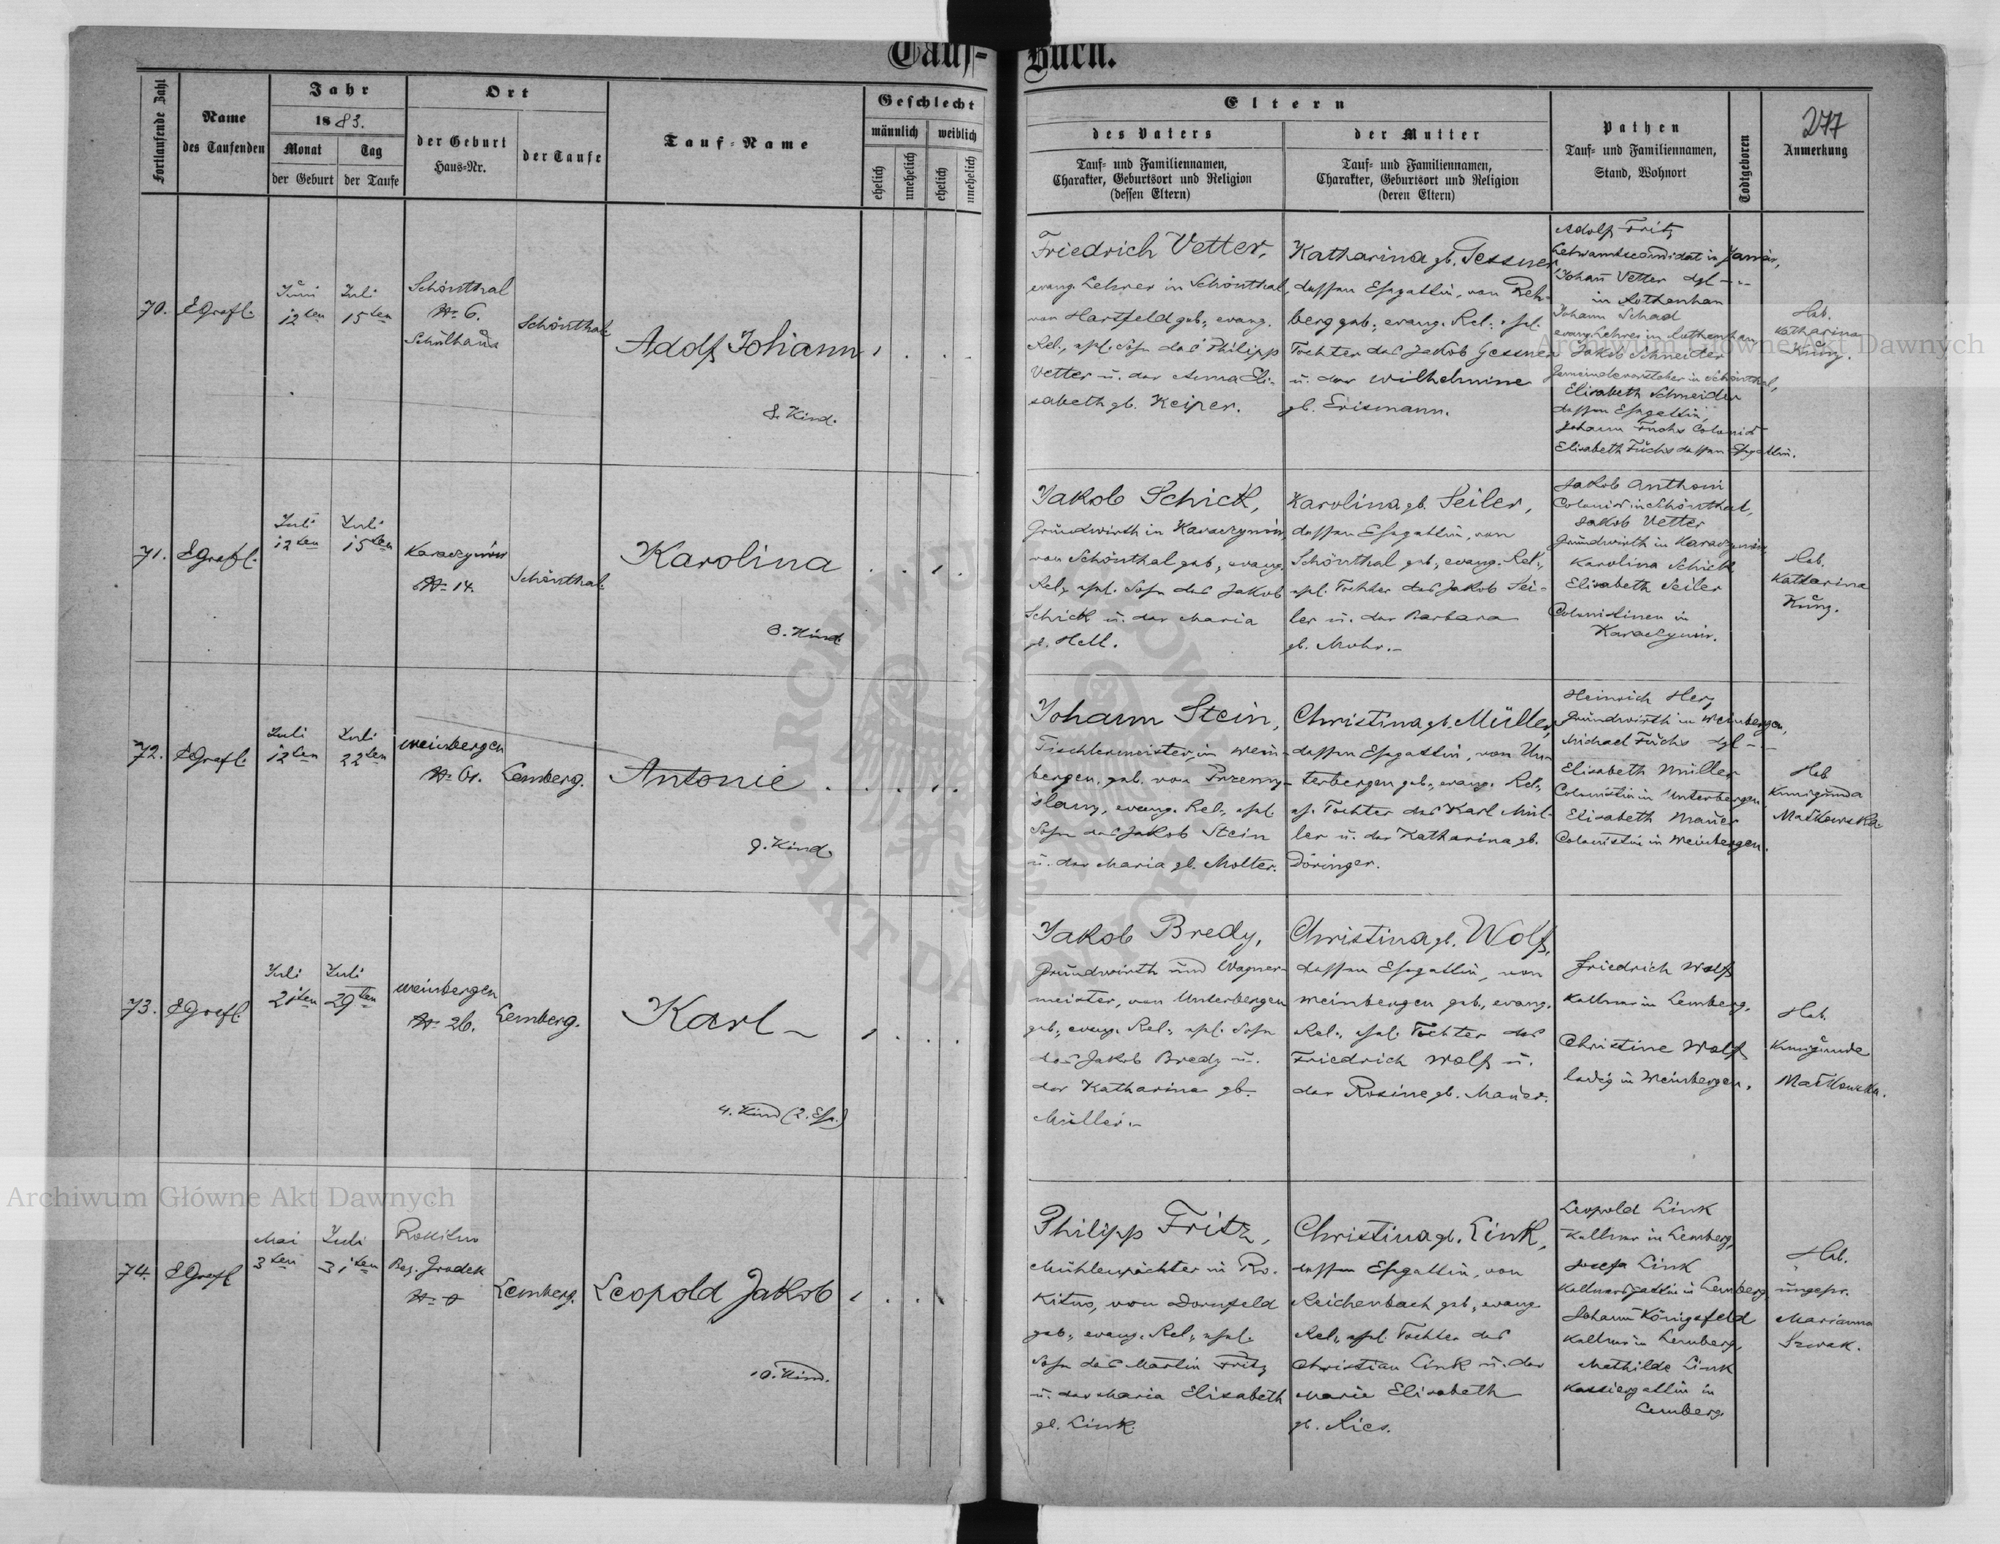 Tauf-Buch.
Fortlaufende Zahl
Name
des Taufenden
Jahr
1883.
Monat
der Geburt
Tag
der Taufe
Ort
der Geburt
Haus-Nr.
der Taufe
Tauf-Name
Geschlecht
männlich
weiblich
ehelich
unehelich
ehelich
unehelich
Eltern
des Vaters
Tauf- und Familiennamen,
Charakter, Geburtsort und Religion
(dessen Eltern)
der Mutter
Tauf- und Familiennamen,
Charakter, Geburtsort und Religion
(deren Eltern)
Pathen
Tauf- und Familiennamen,
Stand, Wohnort
Todtgeboren
277
Anmerkung
70.
EGrafl.
Juni
12ten
Juli
15ten
Schönthal
Nr. 6.
Schulhaus
Schönthal
Adolf Johann
8. Kind.
Friedrich Vetter,
evang. Lehrer in Schönthal,
von Hartfeld geb., evang.
Rel., ehel. Sohn des Philipp
Vetter u. der Anna Eli-
sabeth gb. Keiper.
Katharina gb. Gessner,
dessen Ehegattin, von Reh-
berg geb., evang. Rel., ehel.
Tochter des Jakob Gessner
u. der Wilhelmine
gb. Erismann.
Adolf Fritz
Lehramtscandidat in
Johann Vetter dgl --
in Rothenhan
Johann Schad
evang Lehrer in Rothenhan
Jakob Schneider
Gemeindevorsteher in Schönthal,
Elisabeth Schneider
dessen Ehegattin,
Johann Fuchs Colonist
Elisabeth Fuchs dessen Ehegattin.
Heb.
Katharina
Kung.
71.
EGrafl.
Juli
12ten
Juli
15ten
Karaczynów
Nr. 14.
Schönthal
Karolina
3. Kind
Jakob Schick,
Grundwirth in Karaczynów,
von Schönthal geb., evang.
Rel., ehel. Sohn des Jakob
Schick u. der Maria
gb. Hell.
Karolina gb. Seiler,
dessen Ehegattin, von
Schönthal geb., evang. Rel.,
ehel. Tochter des Jakob Sei-
ler u. der Barbara
gb. Mohr.-
Jakob Anthoni
Colonist in Schönthal,
Jakob Vetter
Grundwirth in Karaczynów
Karolina Schick
Elisabeth Seiler
Colonistinen in
Karaczynów.
Heb.
Katharina
Kung.
72.
EGrafl.
Juli
12ten
Juli
22ten
Weinbergen
Lemberg.
Antonie
9. Kind.
Johann Stein,
Tischlermeister, in Wein-
bergen, geb. von Przemy-
slany, evang. Rel., ehel.
Sohn des Jakob Stein
u. der Maria gb. Molter.
Christina gb. Müller,
dessen Ehegattin, von Un-
terbergen geb., evang. Rel.,
eh. Tochter des Karl Mül-
ler u. der Katharina gb.
Döringer.
Heinrich Herz
Grundwirth in Weinbergen,
Michael Fuchs dgl --
Elisabeth Müller
Colonistin in Unterbergen
Elisabeth Mauer
Colonistin in Weinbergen.
Heb
Kunigunda
Malkowska.
73.
EGrafl.
Juli
21ten
Juli
29ten
Weinbergen
Nr. 26.
Lemberg.
Karl -
4. Kind (2. Ehe.)
Jakob Bredy,
Grundwirth und Wagner-
meister, von Unterbergen
geb., evang. Rel., ehel. Sohn
des Jakob Bredy u.
der Katharina gb.
Müller.-
Christina gb. Wolf,
dessen Ehegattin, von
Weinbergen geb., evang.
Rel., ehel. Tochter des
Friedrich Wolf u.
der Rosine gb. Mauer.
Friedrich Wolf
Kellner in Lemberg.
Christine Wolf
ledig in Weinbergen.
Heb
Kunigunde
Malkowska.
74.
EGrafl
Mai
3ten
Juli
31ten
Rokitno
Bez. Grodek
Lemberg.
Leopold Jakob
10. Kind.
Philipp Fritz,
Mühlenpächter in Ro-
kitno, von Dornfeld
geb., evang. Rel., ehel.
Sohn des Martin Fritz
u. der Maria Elisabeth
gb. Link.
Christina gb. Link,
dessen Ehegattin, von
Reichenbach geb., evang
Rel., ehel. Tochter des
Christian Link u. der
Marie Elisabeth
gb. Ries.
Leopold Link
Kellner in Lemberg,
Josefa Link
Kellnersgattin in Lemberg
Johann Königsfeld
Kellner in Lemberg,
Mathilde Link
Kassiersgattin in
Lemberg.
Heb.
ungepr.
Marianna
Archiwum Główne Akt Dawnych
Archiwum Główne Akt Dawnych